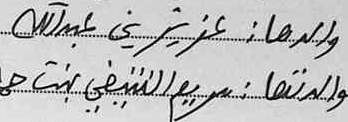 والدها : عزيزي عبدالله
والدتها : مريم الشيفي بنت